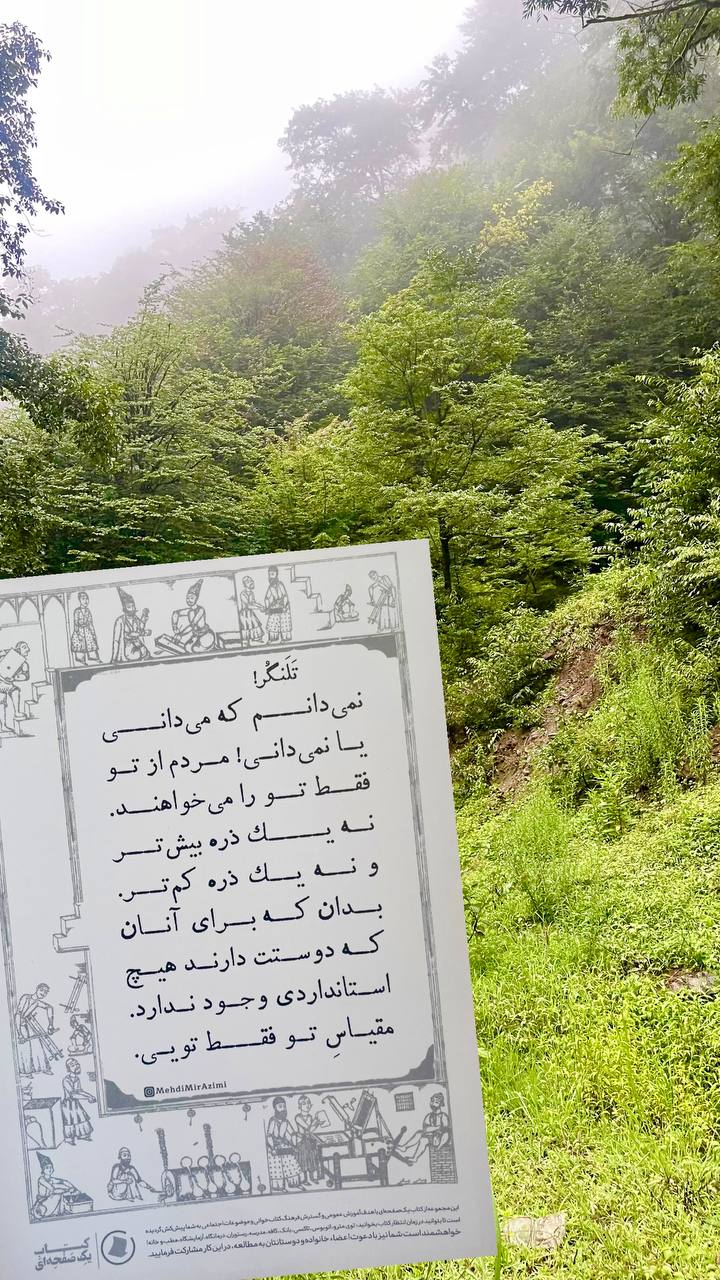 تَلَنگُر!
نمی‌دانم که می‌دانی
یا نمی‌دانی! مردم از تو
فقط تو را می‌خواهند.
نه یک ذره بیش‌تر
و نه یک ذره کم‌تر.
بدان که برای آنان
که دوستت دارند هیچ
استانداردی وجود ندارد.
مقیاسِ تو فقط تویی.
MehdiMirAzimi
این مجموعه از کتاب یک صفحه‌ای با هدف آموزش عمومی و گسترش فرهنگ کتاب‌خوانی و موضوعات اجتماعی به شما پیش‌کش گردیده
است تا بتوانید در زمان انتظار کتاب بخوانید: توی مترو، اتوبوس، تاکسی، بانک، کافه، مدرسه، رستوران، درمانگاه، آزمایشگاه، مطب و خانه!
خواهشمند است شما نیز با دعوت اعضاء خانواده و دوستانتان به مطالعه، در این کار مشارکت فرمایید.
کتاب
یک صَفحِه‌ایْ